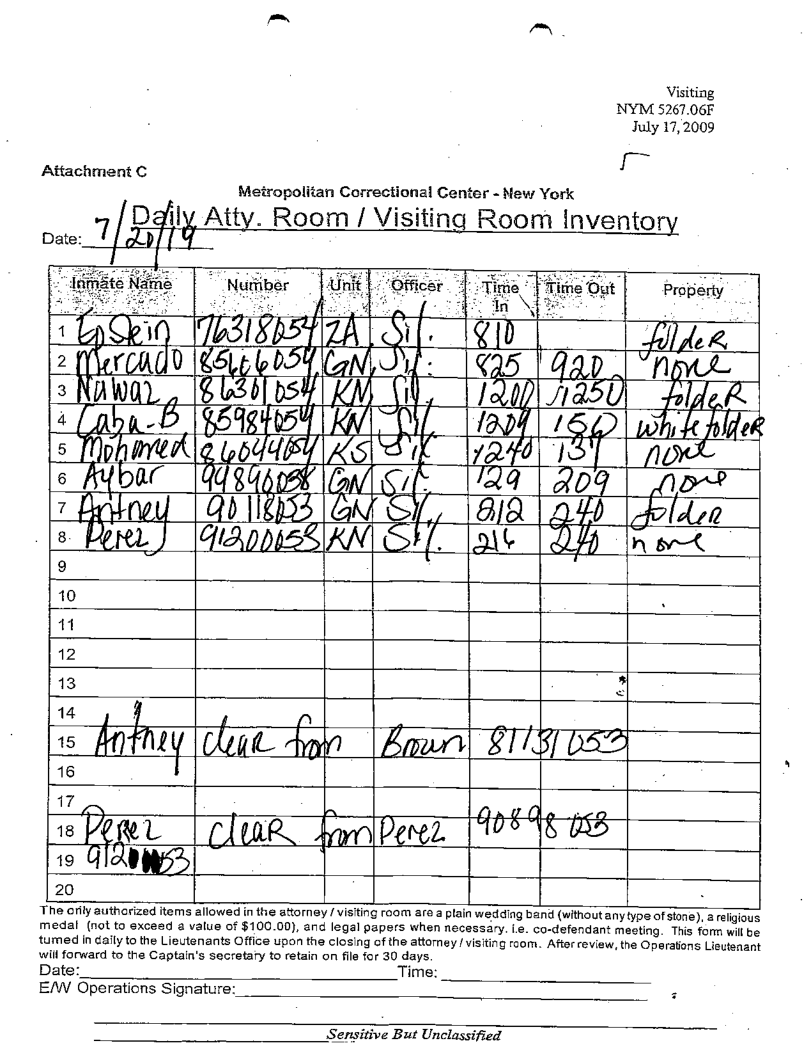 Visiting
NYM 5267.06F
July 17, 2009
Attachment C
Metropolitan Correctional Center - New York
Daily Atty. Room / Visiting Room Inventory
Date: 7/20/19
Inmate Name Number Unit Officer Time In Time Out Property
1 EpSein 76318054 ZA 810 folder
2 Mercado GN 825 920 none
3 Nawaz 86301054 KN 1200 1250 folder
4 Caba-B 85984054 KN 1209 150 white folder
5 Mohamed 86044054 KS 1240 137 none
6 Aybar 94890038 GN 129 209 none
7 Antney 90118053 GN 212 240 folder
8 Perez 91200053 KN 216 240 none
9
10
11
12
13
14
15 Antney clear from Brown 81131053
16
17
18 Perez clear from Perez 90898053
19
20
The only authorized items allowed in the attorney / visiting room are a plain wedding band (without any type of stone), a religious
medal (not to exceed a value of $100.00), and legal papers when necessary. i.e. co-defendant meeting. This form will be
turned in daily to the Lieutenants Office upon the closing of the attorney / visiting room. After review, the Operations Lieutenant
will forward to the Captain's secretary to retain on file for 30 days.
Date: Time:
E/W Operations Signature:
Sensitive But Unclassified